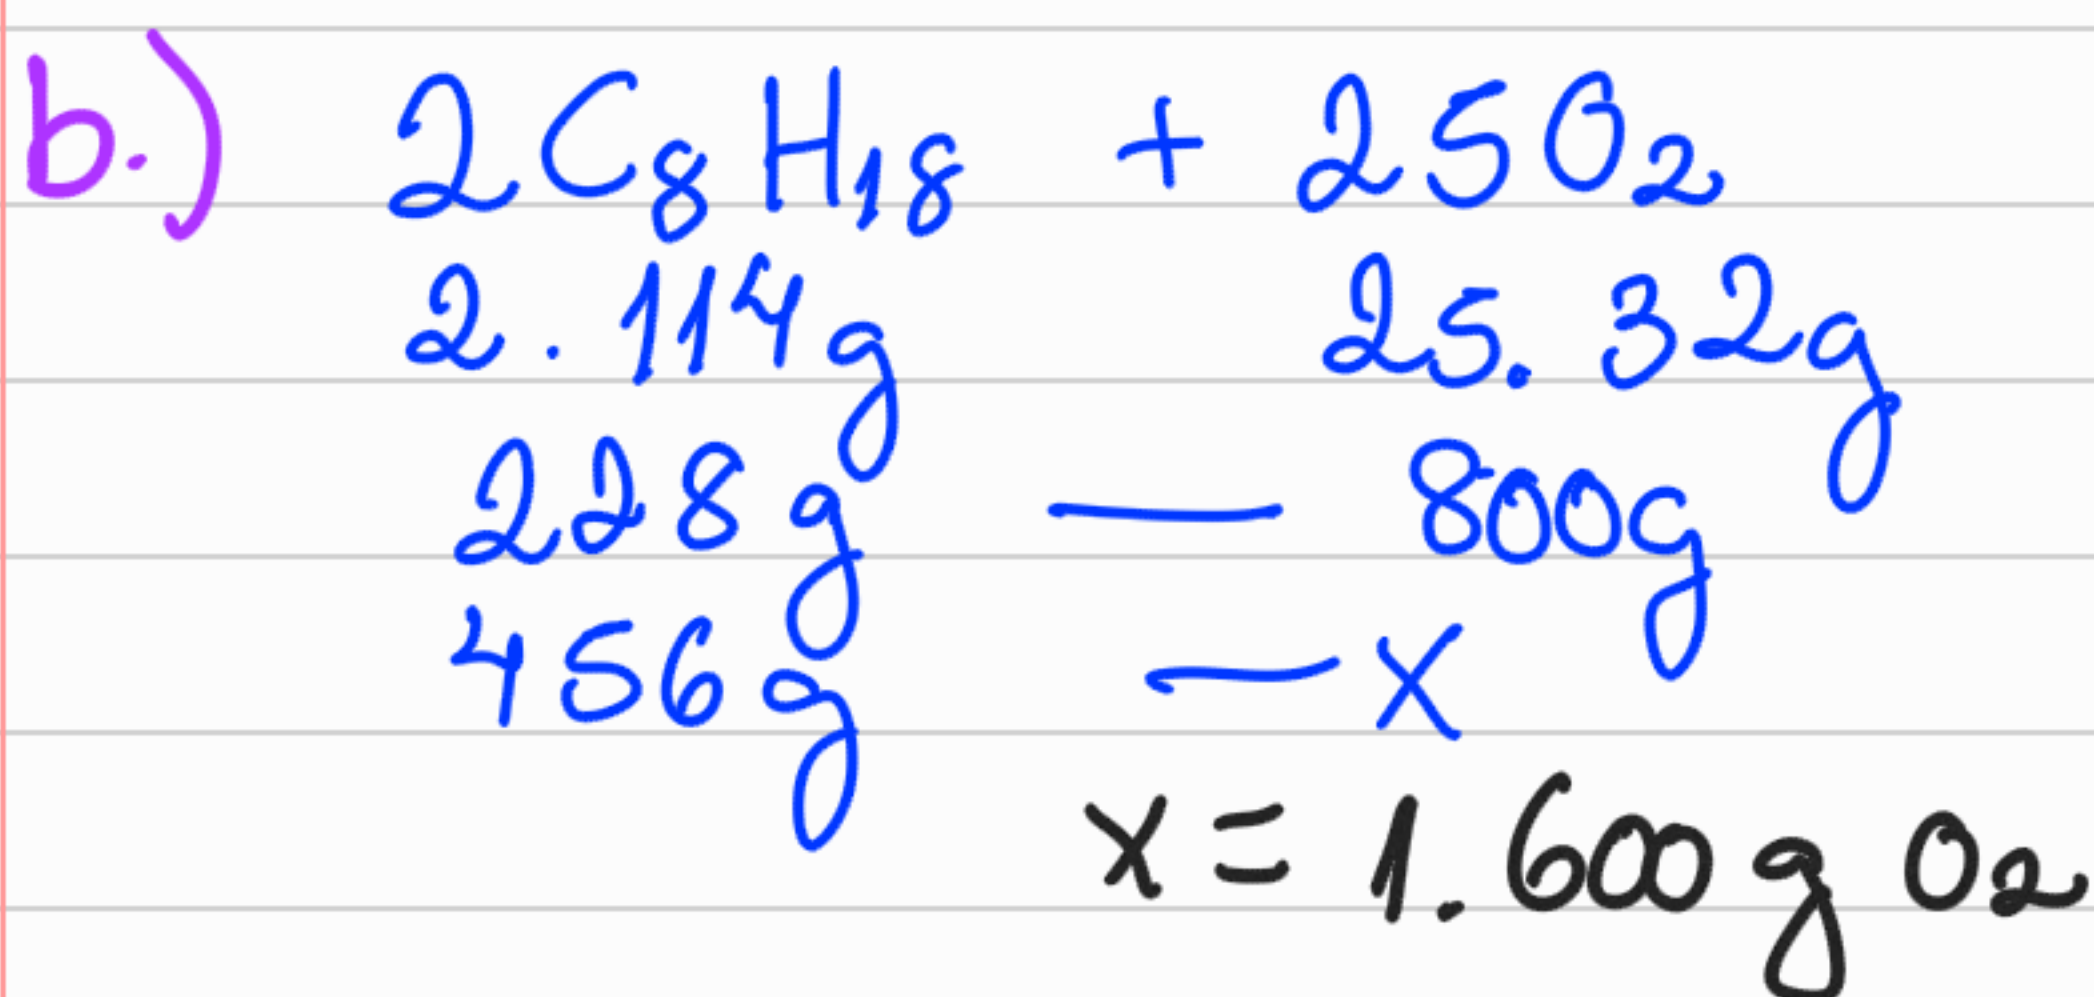 b.) 2C₈H₁₈ + 25O₂
2.114g 25.32g
228g — 800g
456g — x
x = 1.600g O₂